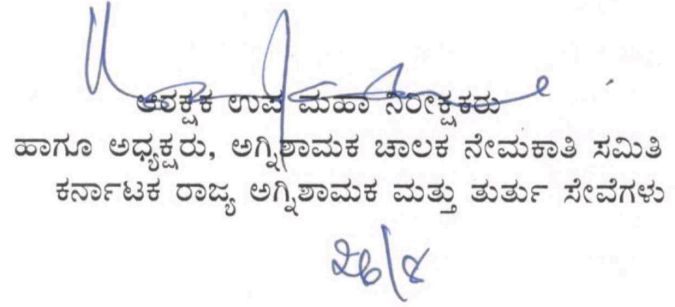 ಆರಕ್ಷಕ ಉಪ ಮಹಾ ನಿರೀಕ್ಷಕರು
ಹಾಗೂ ಅಧ್ಯಕ್ಷರು, ಅಗ್ನಿಶಾಮಕ ಚಾಲಕ ನೇಮಕಾತಿ ಸಮಿತಿ
ಕರ್ನಾಟಕ ರಾಜ್ಯ ಅಗ್ನಿಶಾಮಕ ಮತ್ತು ತುರ್ತು ಸೇವೆಗಳು